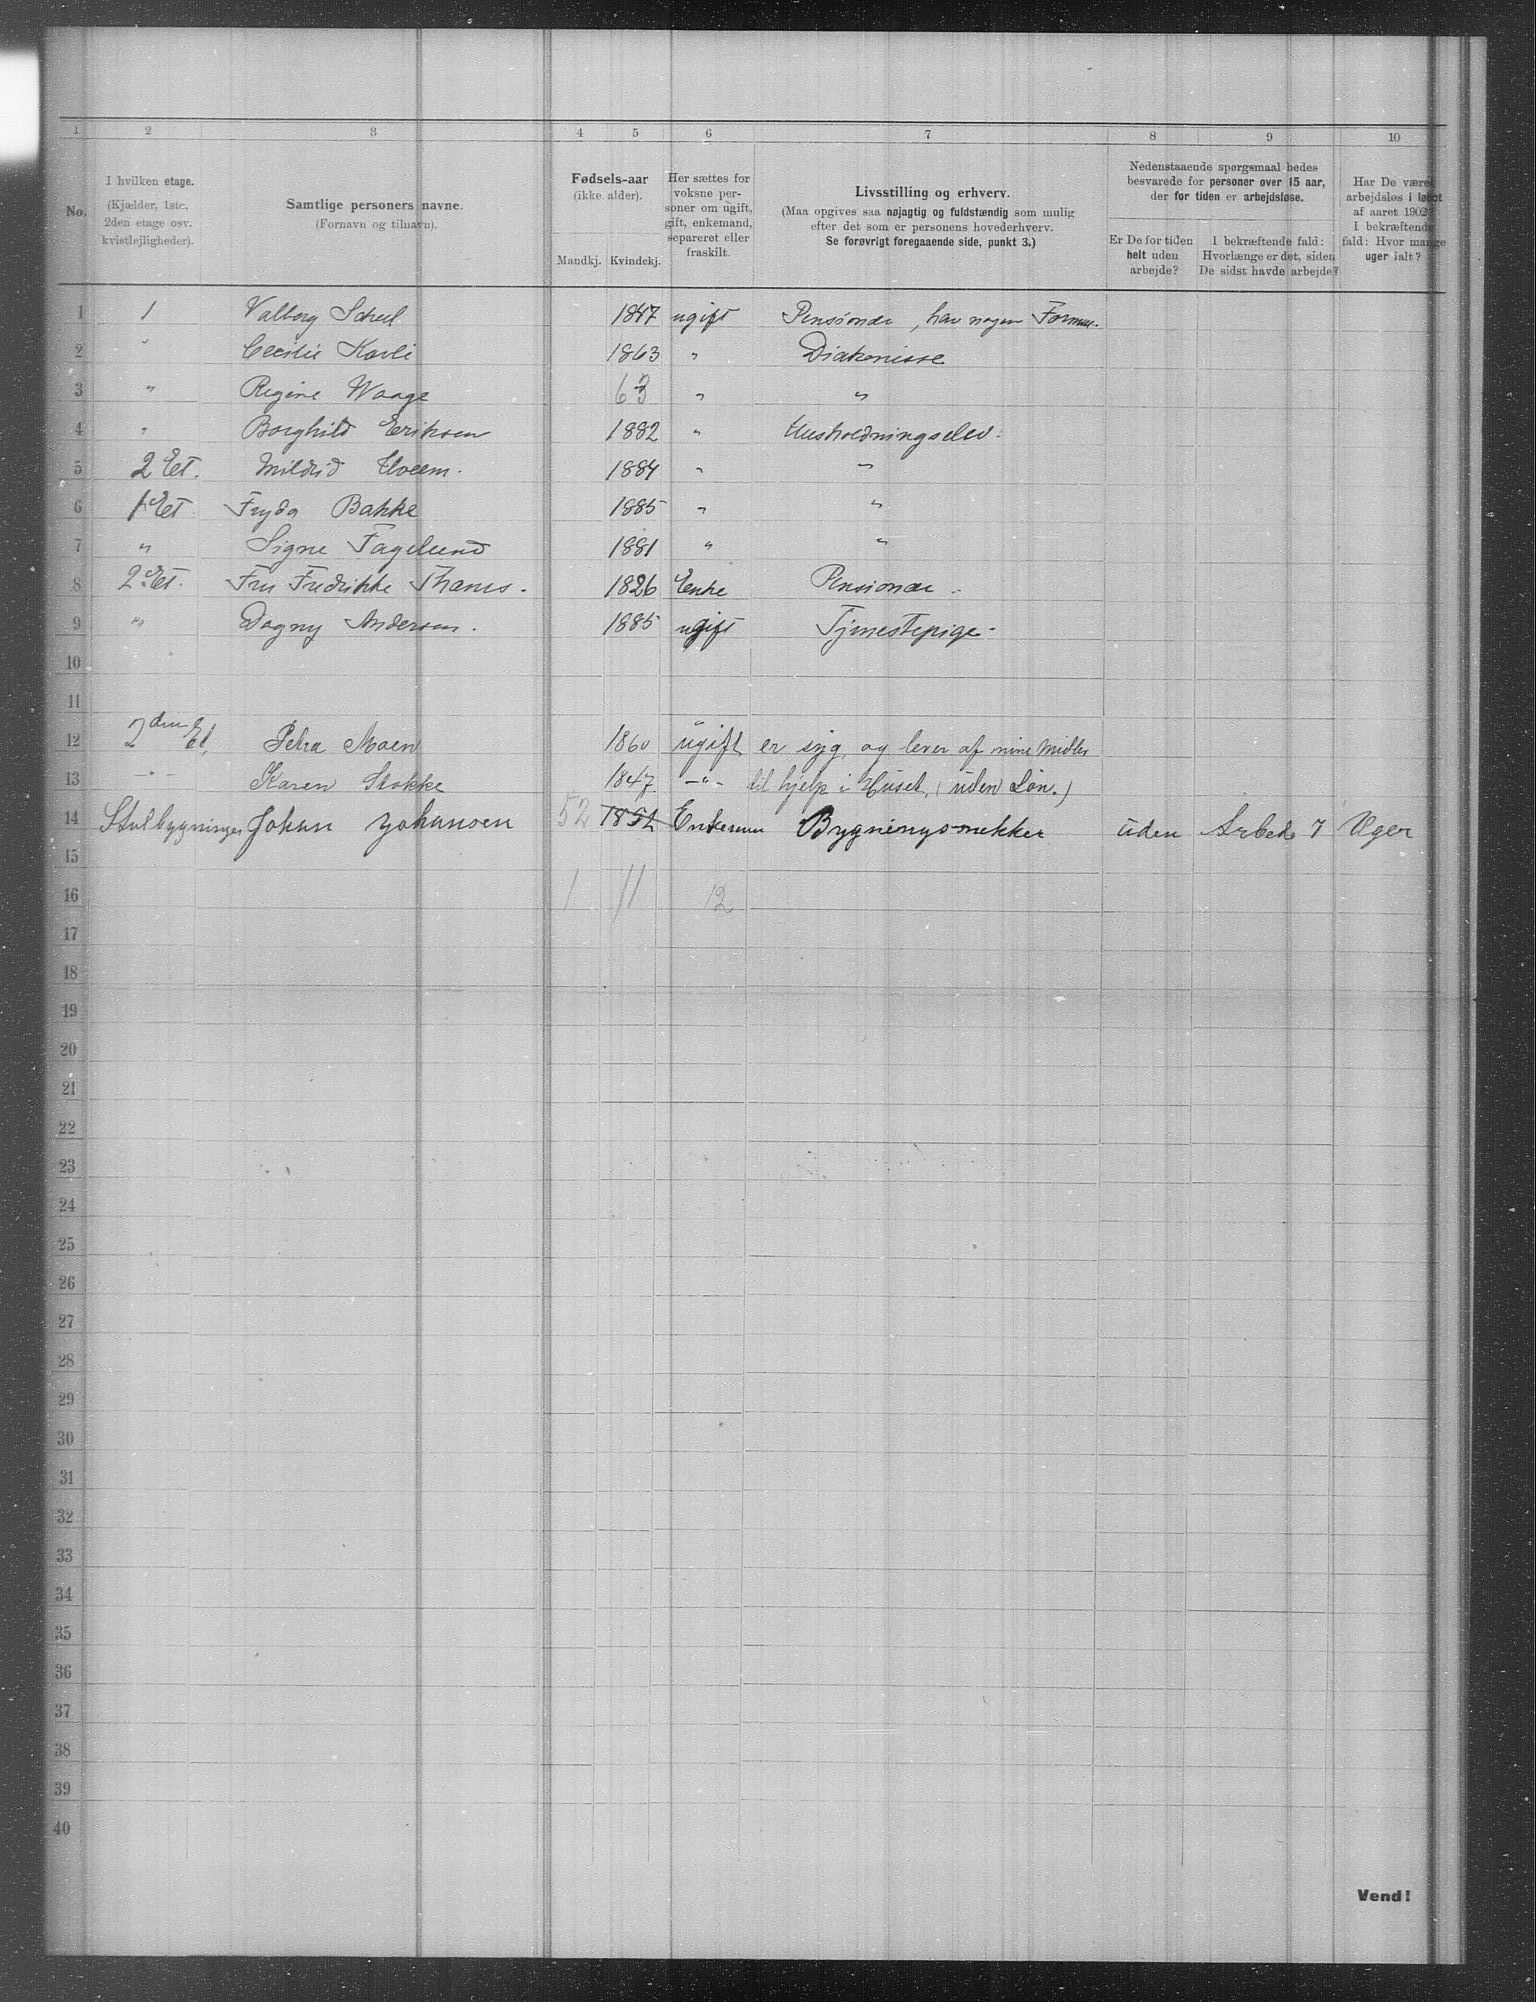 1 2 3 4 5 6 7 8 9 10
No.
I hvilken etage.
(Kjælder, 1ste,
2den etage osv.
kvistlejligheder).
Samtlige personers navne.
(Fornavn og tilnavn).
Fødsels-aar
(ikke alder).
Mandkj. Kvindekj.
Her sættes for
voksne per-
soner om ugift,
gift, enkemand,
separeret eller
fraskilt.
Livsstilling og erhverv.
(Maa opgives saa nøjagtig og fuldstændig som mulig
efter det som er personens hovederhverv.
Se forøvrigt foregaaende side, punkt 3.)
Nedenstaaende spørgsmaal bedes
besvarede for personer over 15 aar,
der for tiden er arbejdsløse.
Er De for tiden
helt uden
arbejde?
I bekræftende fald:
Hvorlænge er det, siden
De sidst havde arbejde?
Har De været
arbejdsløs i løbet
af aaret 1902?
I bekræftende
fald: Hvor mange
uger ialt?
1 1 Valborg Scheel 1847 ugift Pensionær, har nogen Formue.
2 " Cecilie Karli 1863 " Diakonisse
3 " Regine Waage 63 " "
4 " Borghild Eriksen 1882 " Husholdningselev.
5 2 Et. Mildrid 1884 " "
6 1 Et Fryda Bakke 1885 " "
7 " Signe Fagelund 1881 " "
8 2 Et. Fru Fredrikke 1826 Enke Pensionær.
9 " Dagny Andersen. 1885 ugift Tjenestepige.
10
11
12 2den Et. Petra Moen 1860 ugift er syg, og lever af mine Midler
13 -"- Karen Stokke 1847. -"- til hjelp i Huset, (uden Løn.)
14 Johan Johansen 52 1852 Bygningssnekker uden Arbeds 7 Uger
15
16 1 11 12
17
18
19
20
21
22
23
24
25
26
27
28
29
30
31
32
33
34
35
36
37
38
39
40
Vend!